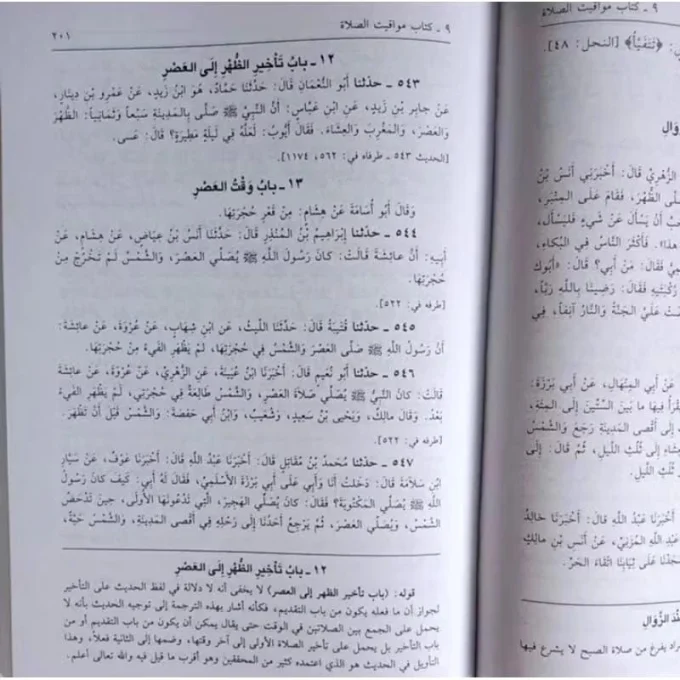 ٩ ـ كتاب مواقيت الصلاة
٢٠١
١٢ ـ بابُ تَأخِيرِ الظُّهْرِ إِلَى العَصْرِ
٥٤٣ ـ حدّثنا أَبُو النُّعْمَانِ قَالَ: حَدَّثَنَا حَمَّادٌ، هُوَ ابْنُ زَيْدٍ، عَنْ عَمْرِو بْنِ دِينَارٍ،
عَنْ جابِرِ بْنِ زَيْدٍ، عَنِ ابْنِ عَبَّاسٍ: أَنَّ النَّبِيَّ ﷺ صَلَّى بِالمَدِينَةِ سَبْعاً وَثَمَانِياً: الظُّهْرَ
وَالعَصْرَ، وَالمَغْرِبَ وَالعِشَاءَ. فَقَالَ أَيُّوبُ: لَعَلَّهُ فِي لَيْلَةٍ مَطِيرَةٍ؟ قالَ: عَسى.
[الحديث ٥٤٣ ـ طرفاه في: ٥٦٢، ١١٧٤].
١٣ ـ بابُ وَقْتِ العَصْرِ
وَقَالَ أَبُو أُسَامَةَ عَنْ هِشَامٍ: مِنْ قَعْرِ حُجْرَتِهَا.
٥٤٤ ـ حدّثنا إِبْرَاهِيمُ بْنُ المُنْذِرِ قَالَ: حَدَّثَنَا أَنَسُ بْنُ عِيَاضٍ، عَنْ هِشَامٍ، عَنْ
أَبِيهِ: أَنَّ عائِشَةَ قَالَتْ: كانَ رَسُولُ اللَّهِ ﷺ يُصَلِّي العَصْرَ، وَالشَّمْسُ لَمْ تَخْرُجْ مِنْ
حُجْرَتِهَا.
[طرفه في: ٥٢٢].
٥٤٥ ـ حدّثنا قُتَيْبَةُ قَالَ: حَدَّثَنَا اللَّيْثُ، عَنِ ابْنِ شِهَابٍ، عَنْ عُرْوَةَ، عَنْ عائِشَةَ:
أَنَّ رَسُولَ اللَّهِ ﷺ صَلَّى العَصْرَ وَالشَّمْسُ فِي حُجْرَتِهَا، لَمْ يَظْهَرِ الفَيْءُ مِنْ حُجْرَتِهَا.
٥٤٦ ـ حدّثنا أَبُو نُعَيْمٍ قَالَ: أَخْبَرَنَا ابْنُ عُيَيْنَةَ، عَنِ الزُّهْرِيِّ، عَنْ عُرْوَةَ، عَنْ عائِشَةَ
قَالَتْ: كانَ النَّبِيُّ ﷺ يُصَلِّي صَلَاةَ العَصْرِ، وَالشَّمْسُ طَالِعَةٌ فِي حُجْرَتِي، لَمْ يَظْهَرِ الفَيْءُ
بَعْدُ. وَقَالَ مالِكٌ، وَيَحْيى بْنُ سَعِيدٍ، وَشُعَيْبٌ، وَابْنُ أَبِي حَفْصَةَ: وَالشَّمْسُ قَبْلَ أَنْ تَظْهَرَ.
[طرفه في: ٥٢٢].
٥٤٧ ـ حدّثنا مُحَمدُ بْنُ مُقَاتِلٍ قَالَ: أَخْبَرَنَا عَبْدُ اللَّهِ قَالَ: أَخْبَرَنَا عَوْفٌ، عَنْ سَيَّارِ
ابْنِ سَلَامَةَ قَالَ: دَخَلْتُ أَنَا وَأَبِي عَلَى أَبِي بَرْزَةَ الأَسْلَمِيِّ، فَقَالَ لَهُ أَبِي: كَيْفَ كانَ رَسُولُ
اللَّهِ ﷺ يُصَلِّي المَكْتُوبَةَ؟ فَقَالَ: كانَ يُصَلِّي الهَجِيرَ، الَّتِي تَدْعُونَهَا الأُولَى، حِينَ تَدْحَضُ
الشَّمْسُ، وَيُصَلِّي العَصْرَ، ثُمَّ يَرْجِعُ أَحَدُنَا إِلَى رَحْلِهِ فِي أَقْصَى المَدِينَةِ، وَالشَّمْسُ حَيَّةٌ،
١٢ ـ بابُ تَأخِيرِ الظُّهْرِ إِلَى العَصْرِ
قوله: (باب تأخير الظهر إلى العصر) لا يخفى أنه لا دلالة في لفظ الحديث على التأخير
لجواز أن ما فعله يكون من باب التقديم، فكأنه أشار بهذه الترجمة إلى توجيه الحديث بأنه لا
يحمل على الجمع بين الصلاتين في الوقت حتى يقال يمكن أن يكون من باب التقديم أو من
باب التأخير بل يحمل على تأخير الصلاة الأولى إلى آخر وقتها، وضمها إلى الثانية فعلاً، وهذا
التأويل في الحديث هو الذي اعتمده كثير من المحققين وهو أقرب ما قيل فيه والله تعالى أعلم.
٩ ـ كتاب مواقيت الصلاة
﴿تَتَفَيَّأُ﴾ [النحل: ٤٨].
الزُّهْرِيِّ قَالَ: أَخْبَرَنِي أَنَسُ بْنُ
الظُّهْرَ، فَقَامَ عَلَى المِنْبَرِ،
أَنْ يَسْأَلَ عَنْ شَيْءٍ فَلْيَسْأَلْ،
هذا». فَأَكْثَرَ النَّاسُ فِي البُكاءِ،
فَقَالَ: مَنْ أَبِي؟ قَالَ: «أَبُوكَ
رُكْبَتَيْهِ فَقَالَ: رَضِينَا بِاللَّهِ رَبّاً،
عَلَيَّ الجَنَّةُ وَالنَّارُ آنِفاً، فِي
عَنْ أَبِي المِنْهَالِ، عَنْ أَبِي بَرْزَةَ:
فِيها ما بَيْنَ السِّتِّينَ إِلَى المِئَةِ،
إِلَى أَقْصَى المَدِينَةِ رَجَعَ وَالشَّمْسُ
إِلَى ثُلُثِ اللَّيْلِ، ثُمَّ قَالَ: إِلَى
اللَّيْلِ.
أَخْبَرَنَا عَبْدُ اللَّهِ قَالَ: أَخْبَرَنَا خالِدُ
اللَّهِ المُزَنِيِّ، عَنْ أَنَسِ بْنِ مالِكٍ
عَلَى ثِيَابِنَا اتِّقَاءَ الحَرِّ.
الزَّوَالِ
يفرغ من صلاة الصبح لا يشرع فيها